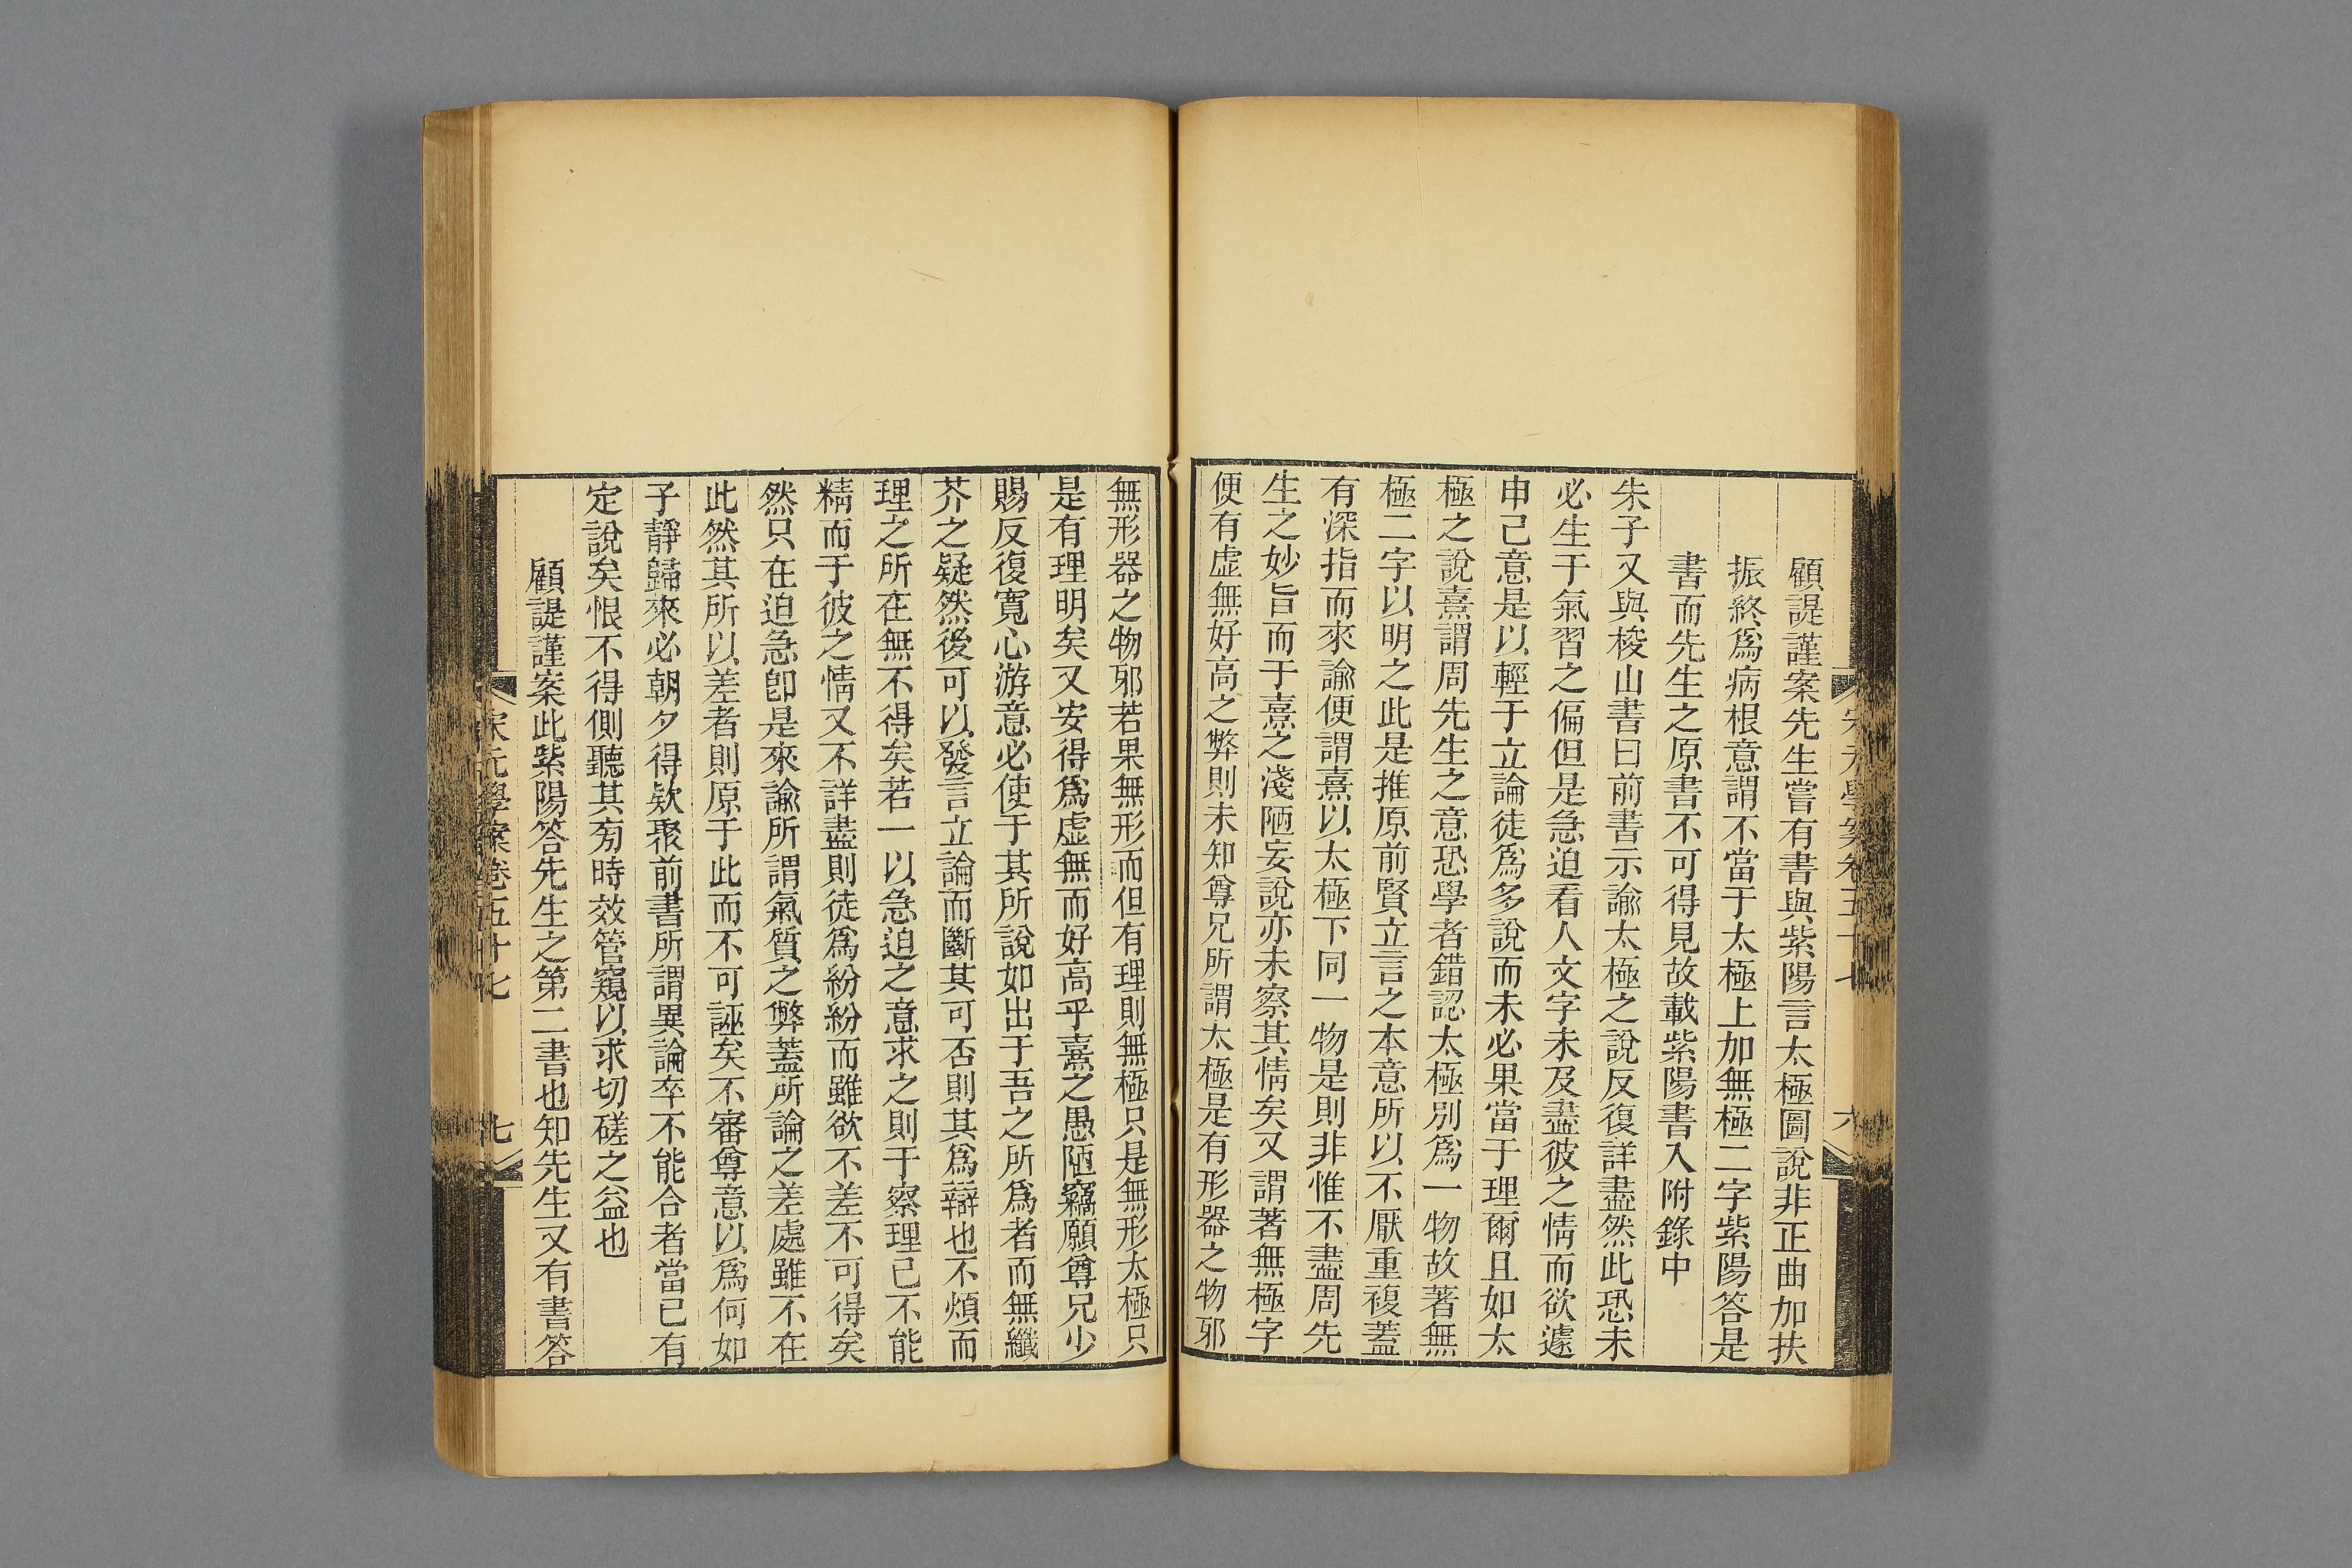 顧諟謹案先生嘗有書與紫陽言太極圖說非正曲加扶
振終爲病根意謂不當于太極上加無極二字紫陽答是
書而先生之原書不可得見故載紫陽書入附錄中
朱子又與梭山書曰前書示諭太極之說反復詳盡然此恐未
必生于氣習之偏但是急迫看人文字未及盡彼之情而欲遽
申己意是以輕于立論徒爲多說而未必果當于理爾且如太
極之說熹謂周先生之意恐學者錯認太極別爲一物故著無
極二字以明之此是推原前賢立言之本意所以不厭重複蓋
有深指而來諭便謂熹以太極下同一物是則非惟不盡周先
生之妙旨而于熹之淺陋妄說亦未察其情矣又謂著無極字
便有虛無好高之弊則未知尊兄所謂太極是有形器之物邪
無形器之物邪若果無形而但有理則無極只是無形太極只
是有理明矣又安得爲虛無而好高乎熹之愚陋竊願尊兄少
賜反復寬心游意必使于其所說如出于吾之所爲者而無纖
芥之疑然後可以發言立論而斷其可否則其爲辯也不煩而
理之所在無不得矣若一以急迫之意求之則于察理已不能
精而于彼之情又不詳盡則徒爲紛紛而雖欲不差不可得矣
然只在迫急卽是來諭所謂氣質之弊蓋所論之差處雖不在
此然其所以差者則原于此而不可誣矣不審尊意以爲何如
子靜歸來必朝夕得款聚前書所謂異論卒不能合者當已有
定說矣恨不得側聽其旁時效管窺以求切磋之益也
顧諟謹案此紫陽答先生之第二書也知先生又有書答
宋元學案卷五十七
七